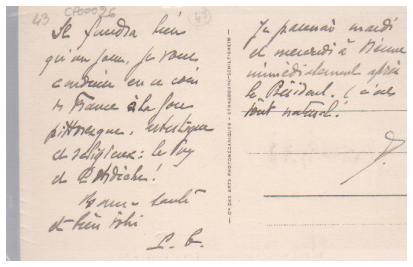 43
CP00026
43
Il faudra bien
qu'un jour, je vous
conduise en ce coin
de France à la fois
pittoresque, artistique
et religieux : le Puy
et l'Ardèche !
Bonne santé
et bien vôtre
Je passerai mardi
et mercredi à
immédiatement après
le (c'est
tout naturel !
CIE DES ARTS PHOTOMÉCANIQUES - STRASBOURG-SCHILTIGHEIM